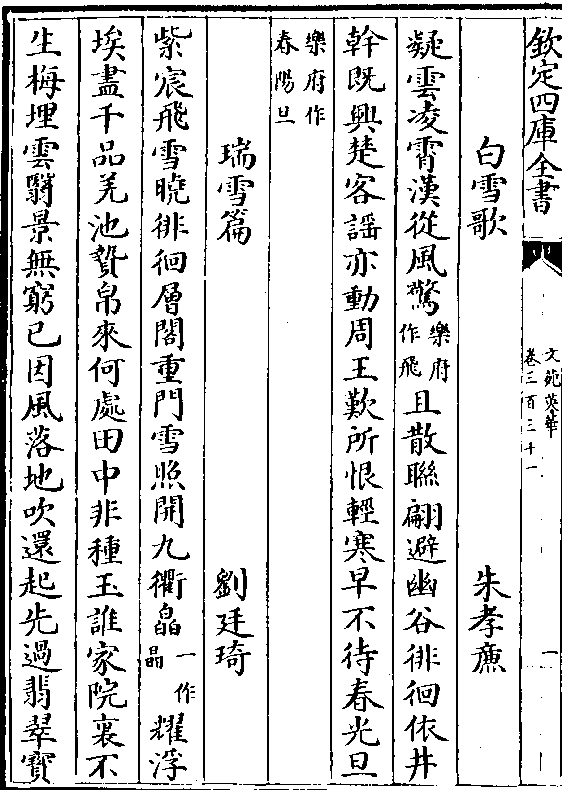 欽定四庫全書
文苑英華
卷三百三十一
一
白雪歌
朱孝廉
凝雲凌霄漢從風驚樂府作飛且散聯翩避幽谷徘徊依井
幹既興楚客謡亦動周王歎所恨輕寒早不待春光旦
樂府作
春陽旦
瑞雪篇
劉廷琦
紫宸飛雪曉徘徊層閣重門雪照開九衢皛一作晶耀浮
埃盡千品羌池贄帛來何處田中非種玉誰家院裏不
生梅埋雲翳景無窮已因風落地吹還起先過翡翠寳